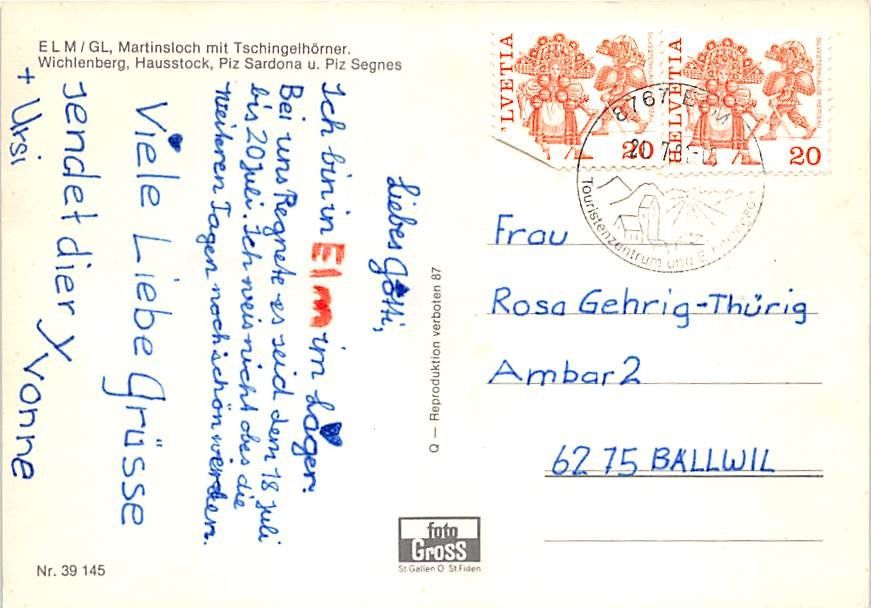 ELM/GL, Martinsloch mit Tschingelhörner.
Wichlenberg, Hausstock, Piz Sardona u. Piz Segnes
Liebes Götti,
Ich bin in Elm im Lager.
Bei uns Regnete es seid dem 18 Juli
bis 20 Juli. Ich weis nicht obes die
weiteren Tagen noch schön werden.
Viele Liebe Grüsse
sendet dier Yvonne
+ Ursi
Q — Reproduktion verboten 87
foto
Gross
St.Gallen O St.Fiden
Nr. 39 145
LVETIA
20
HELVETIA
20
8767 ELM
Touristenzentrum und
Frau
Rosa Gehrig-Thürig
Ambar 2
6275 BALLWIL